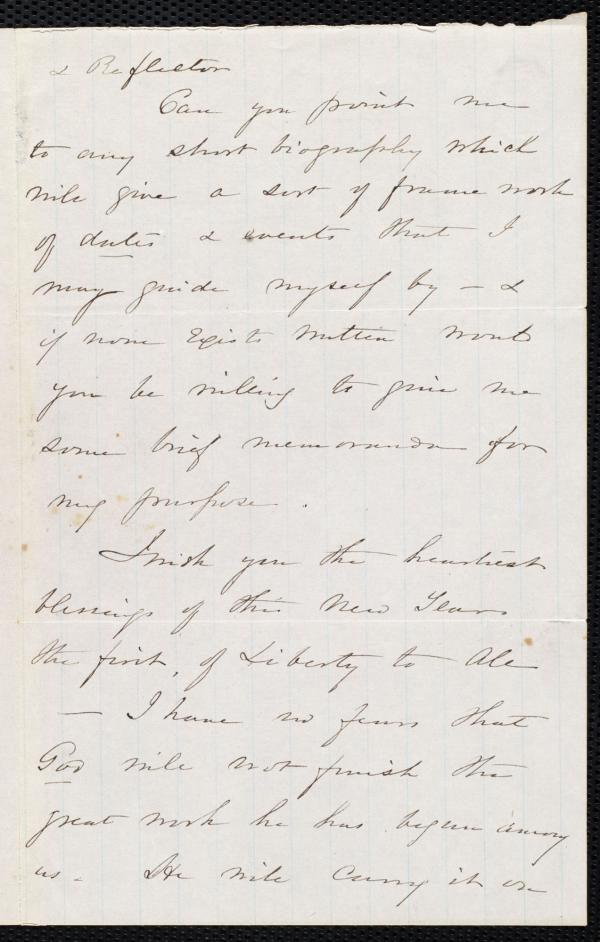 & Reflector
Can you point me
to any short biography which
will give a sort of frame work
of dates & events that I
may guide myself by – &
if none Exists written would
you be willing to give me
some brief memoranda for
my purpose.
I wish you the heartiest
blessings of this New Years
the first, of Liberty to All
— I have no fears that
God will not finish the
great work he has begun among
us. He will carry it on